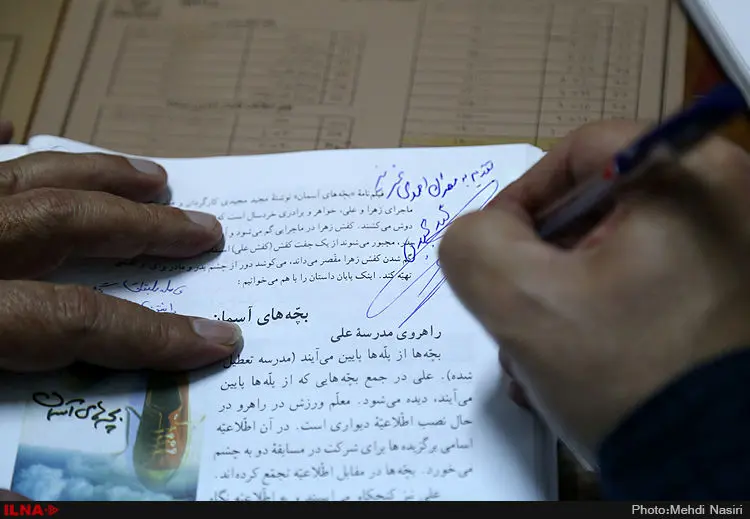 تقدیم به مهرال احمدی عزیز
فیلم‌نامهٔ «بچّه‌های آسمان» نوشتهٔ مجید مجیدی کارگردان و
ماجرای زهرا و علی، خواهر و برادری خردسال است که
دوش می‌کشند. کفش زهرا در ماجرایی گم می‌شود و
پدر، مجبور می‌شوند از یک جفت کفش (کفش علی)
گم شدن کفش زهرا مقصر می‌داند، می‌کوشد دور از چشم پدر و مادر برای او
تهیّه کند. اینک پایان داستان را با هم می‌خوانیم :
بچّه‌های آسمان
راهروی مدرسهٔ علی
بچّه‌ها از پلّه‌ها پایین می‌آیند (مدرسه تعطیل
شده). علی در جمع بچّه‌هایی که از پلّه‌ها پایین
می‌آیند، دیده می‌شود. معلّم ورزش در راهرو در
حال نصب اطّلاعیّهٔ دیواری است. در آن اطّلاعیّه
اسامی برگزیده‌ها برای شرکت در مسابقهٔ دو به چشم
می‌خورد. بچّه‌ها در مقابل اطّلاعیّه تجمّع کرده‌اند.
علی نیز کنجکاو می‌ایستد و به اطّلاعیّه نگاه
بچه‌های آسمان
ILNA
Photo:Mehdi Nasiri